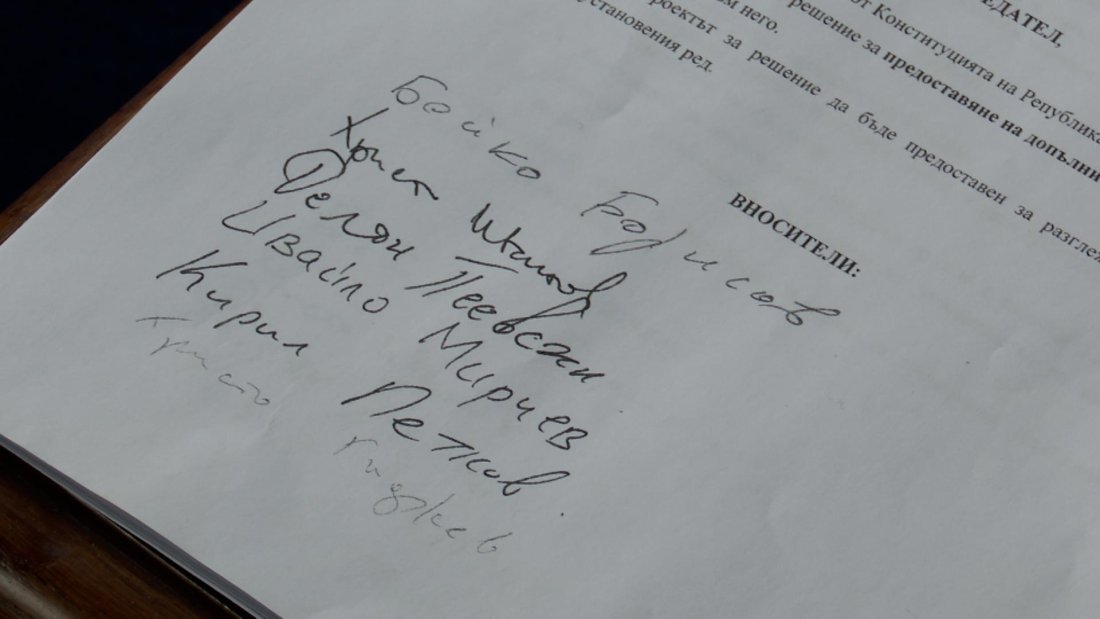 ЕДАТЕЛ,
от Конституцията на Република
решение за предоставяне на допълни
м него.
роектът за решение да бъде предоставен за разглеж
установения ред.
ВНОСИТЕЛИ:
Бойко Борисов
Христо Иванов
Делян Пеевски
Ивайло Мирчев
Кирил Петков
Христо Гаджев